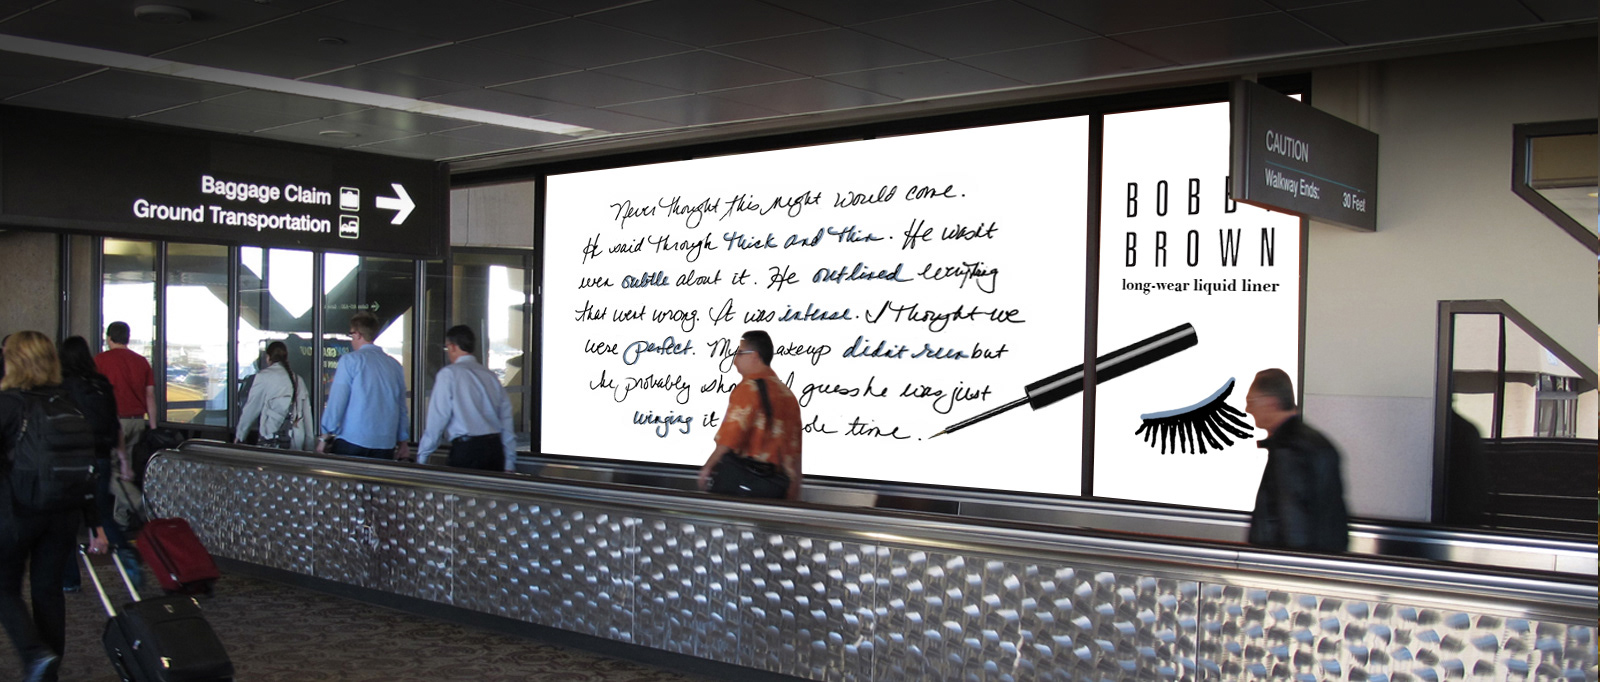 Baggage Claim
Ground Transportation
Never thought this night would come.
He said through thick and thin. He wasn't
even subtle about it. He outlined everything
that went wrong. It was intense. I thought we
were perfect. My akeup didn't run but
he probably sho I guess he was just
winging it ole time.
BOBB
BROWN
long-wear liquid liner
CAUTION
Walkway Ends:
30 Feet